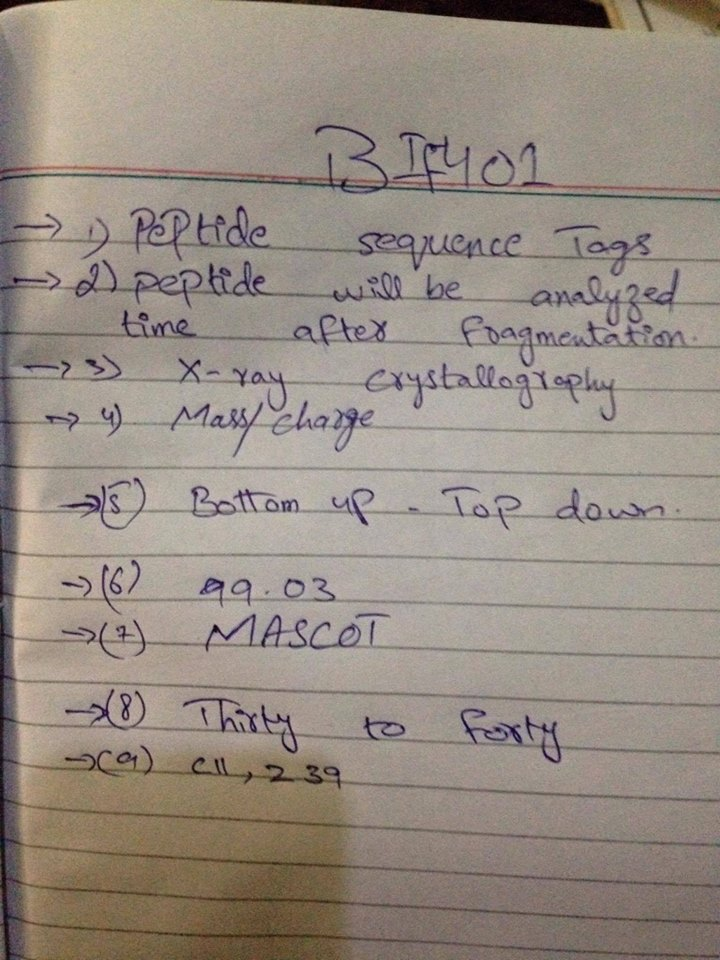 BIF401
→ 1) Peptide sequence Tags
→ 2) peptide will be analyzed
time after fragmentation.
→ 3) X-ray crystallography
→ 4) Mass/charge
→ (5) Bottom up - Top down.
→ (6) 99.03
→ (7) MASCOT
→ (8) Thirty to forty
→ (9) 239